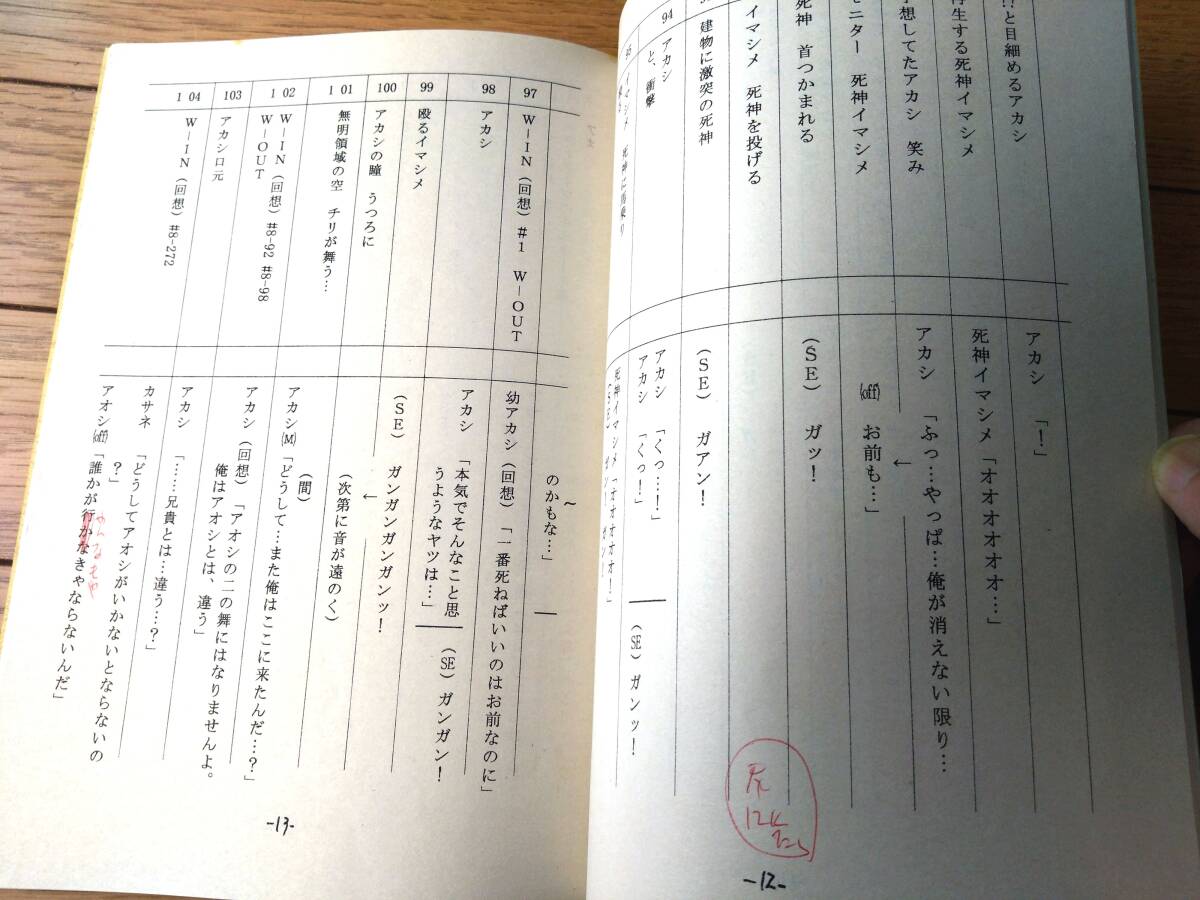 !?と目細めるアカシ
再生する死神イマシメ
予想してたアカシ 笑み
モニター 死神イマシメ
死神 首つかまれる
イマシメ 死神を投げる
建物に激突の死神
94
アカシ
と、衝撃
95
イマシメ 死神に馬乗り
アカシ 「！」
死神イマシメ「オオオオオオ…」
アカシ 「ふっ…やっぱ…俺が消えない限り…
←
(off) お前も…」
（ＳＥ） ガッ！
（ＳＥ） ガアン！
アカシ 「くっ…！」
アカシ 「くっ！」
（SE）ガンッ！
死神イマシメ「オオオオ！」
12K
-12-
97
Ｗ－ＩＮ（回想）＃１ Ｗ－ＯＵＴ
98
アカシ
99
殴るイマシメ
100
アカシの瞳 うつろに
1 01
無明領域の空 チリが舞う…
1 02
Ｗ－ＩＮ（回想）#8-92 #8-98
Ｗ－ＯＵＴ
103
アカシ口元
1 04
Ｗ－ＩＮ（回想）#8-272
〜
のかもな…」
幼アカシ（回想）「一番死ねばいいのはお前なのに」
アカシ 「本気でそんなこと思
うようなヤツは…」
（SE）ガンガン！
（ＳＥ） ガンガンガンガンッ！
←
（次第に音が遠のく）
（間）
アカシ(M)「どうして…また俺はここに来たんだ…？」
アカシ（回想）「アオシの二の舞にはなりませんよ。
俺はアオシとは、違う」
アカシ 「……兄貴とは…違う…？」
カサネ 「どうしてアオシがいかないとならないの
？」
アオシ(off)「誰かが行かなきゃならないんだ」
-13-